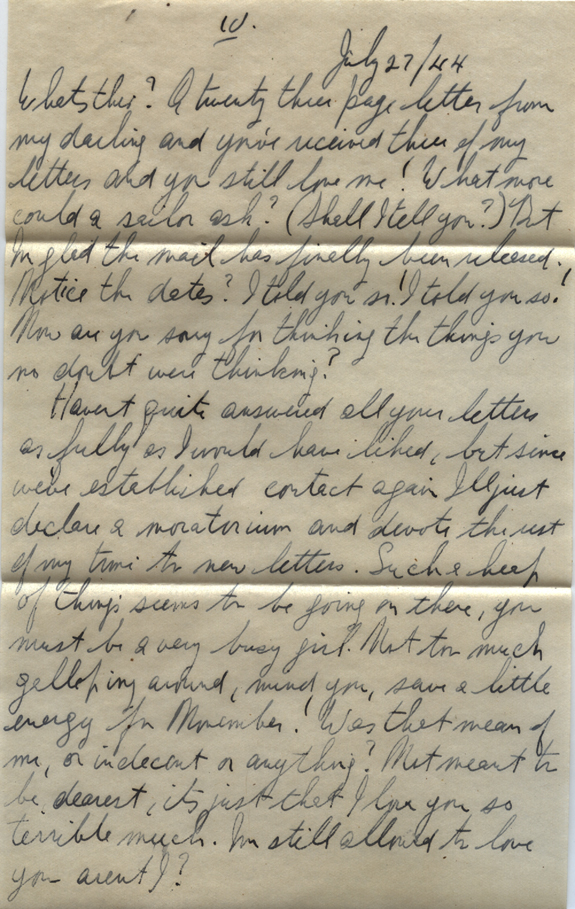 10.
July 27/44
Whats this? A twenty three page letter from
my darling and you've received three of my
letters and you still love me! What more
could a sailor ask? (Shall I tell you?) But
Im glad the mail has finally been released.
Notice the dates? I told you so! I told you so!
Now are you sorry for thinking the things you
no doubt were thinking?
Havent quite answered all your letters
as fully as I would have liked, but since
we've established contact again I'll just
declare a moratorium and devote the rest
of my time to new letters. Such a heap
of things seems to be going on there, you
must be a very busy girl. Not too much
galloping around, mind you, save a little
energy for November! Was that mean of
me, or indecent or anything? Not meant to
be, dearest, its just that I love you so
terrible much. Im still allowed to love
you arent I?